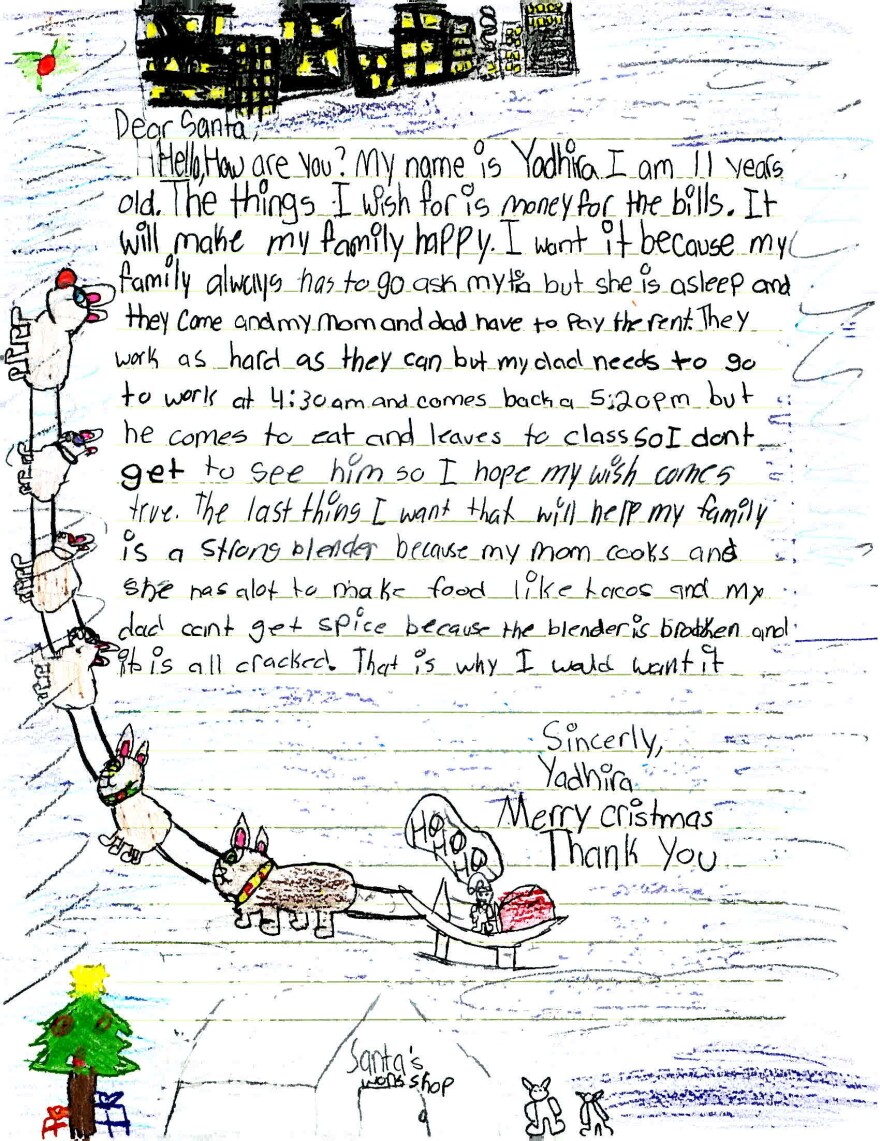 Dear Santa,
Hello, How are you? My name is Yadhira I am 11 years
old. The things I wish for is money for the bills. It
will make my family happy. I want it because my
family always has to go ask my tia but she is asleep and
they come and my mom and dad have to pay the rent. They
work as hard as they can but my dad needs to go
to work at 4:30 am and comes back a 5:20pm but
he comes to eat and leaves to class so I dont
get to see him so I hope my wish comes
true. The last thing I want that will help my family
is a strong blender because my mom cooks and
she has alot to make food like tacos and my
dad cant get spice because the blender is brokken and
it is all cracked. That is why I would want it
Sincerly,
Yadhira
Merry cristmas
Thank You
HO
HO
HO
Santa's
workshop